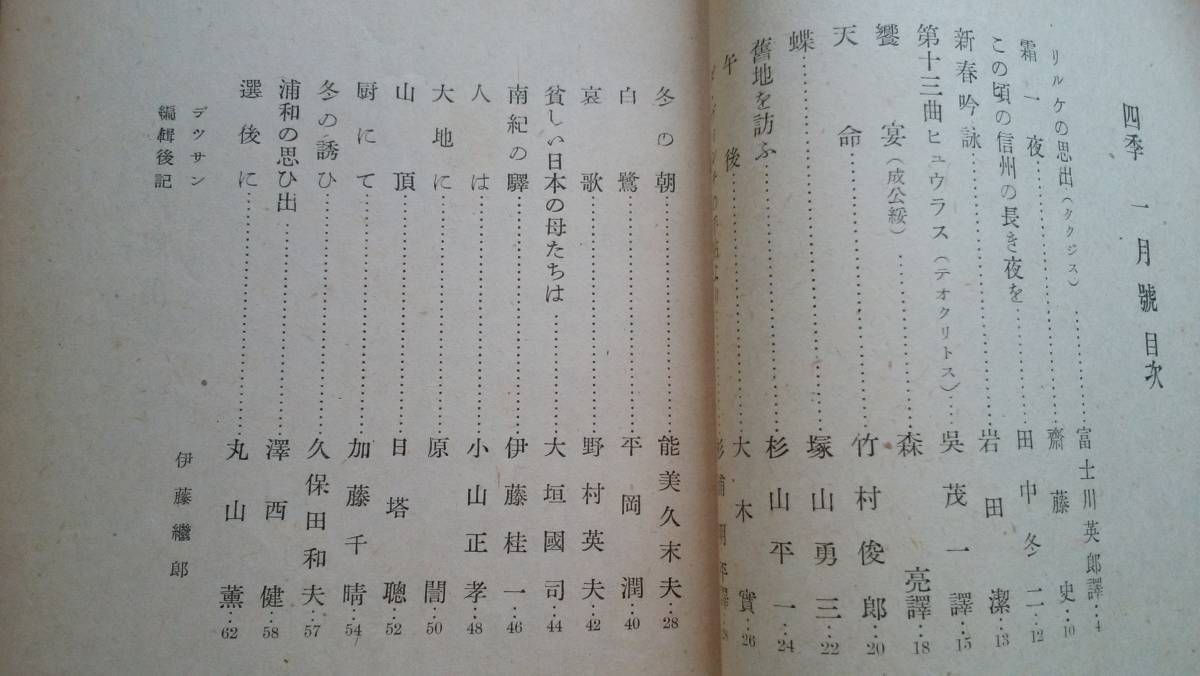 四季 一月號目次
リルケの思出(タクジス)……富士川英郎譯…4
霜一夜……齋藤史…10
この頃の信州の長き夜を……田中冬二…12
新春吟詠……岩田潔…13
第十三曲ヒュウラス(テオクリトス)……吳茂一譯…15
饗宴(成公綏)……森亮譯…18
天命……竹村俊郎…20
蝶……塚山勇三…22
舊地を訪ふ……杉山平一…24
午後……大木實…26
冬の朝……能美久末夫…28
白鷺……平岡潤…40
哀歌……野村英夫…42
貧しい日本の母たちは……大垣國司…44
南紀の驛……伊藤桂一…46
人は……小山正孝…48
大地に……原闇…50
山頂……日塔聰…52
厨にて……加藤千晴…54
冬の誘ひ……久保田和夫…57
浦和の思ひ出……澤西健…58
選後に……丸山薰…62
デッサン 伊藤繼郎
編輯後記